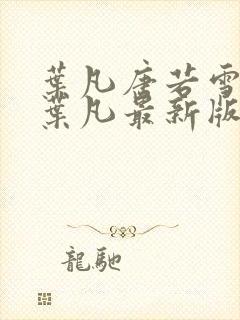 葉凡唐若雪
葉凡最新版
龍馳